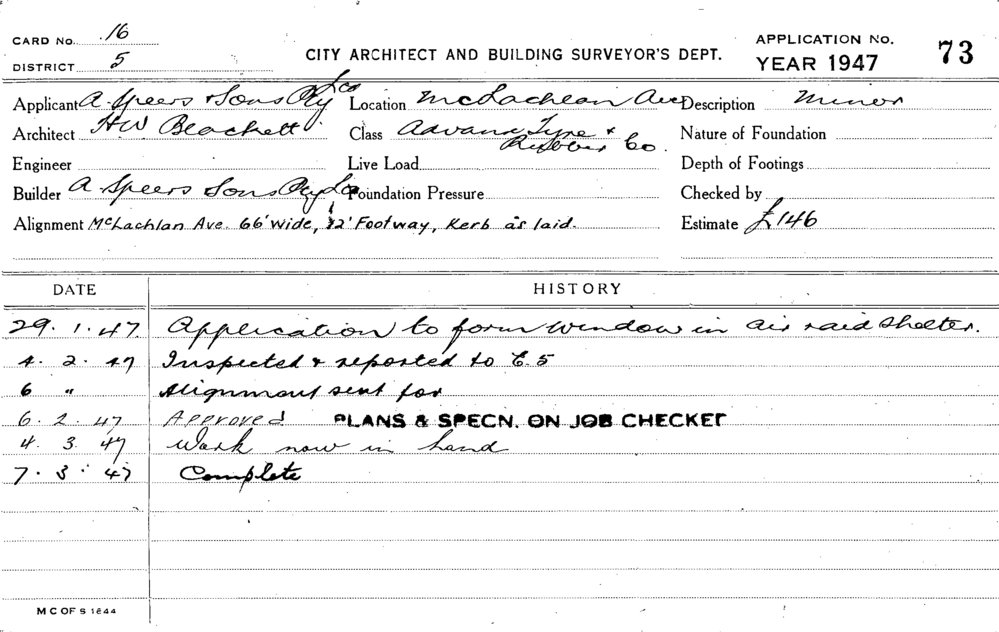 CARD No. 16
DISTRICT 5
CITY ARCHITECT AND BUILDING SURVEYOR'S DEPT.
APPLICATION No. 73
YEAR 1947
Applicant A Speers & Sons Pty Ld Co Location McLachlan Ave Description Minor
Architect HW Blackett Class Advanx Tyre & Rubber Co. Nature of Foundation
Engineer Live Load Depth of Footings
Builder A Speers Sons Pty Ld Co Foundation Pressure Checked by
Alignment McLachlan Ave. 66' wide, 12' Footway, Kerb as laid. Estimate £146
DATE HISTORY
29. 1. 47. Application to form window in air raid shelter.
4. 2. 47 Inspected & reported to C.5
6 " Alignment sent for
6. 2. 47 Approved PLANS & SPECN. ON JOB CHECKED
4. 3. 47 Work now in hand
7. 3. 47 Complete
M C OF S 1644